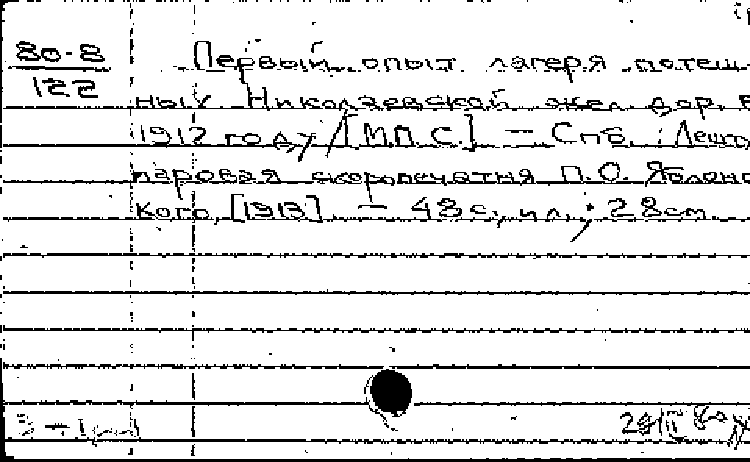 80-8
122
Первый опыт лагеря потеш-
ных Николаевской жел. дор. в
1912 году / [М.П.С.] – Спб. : Лешту
паровая скоропечатня П.О. Яблонс
кого, [1913] – 48 с., ил. ; 28 см.